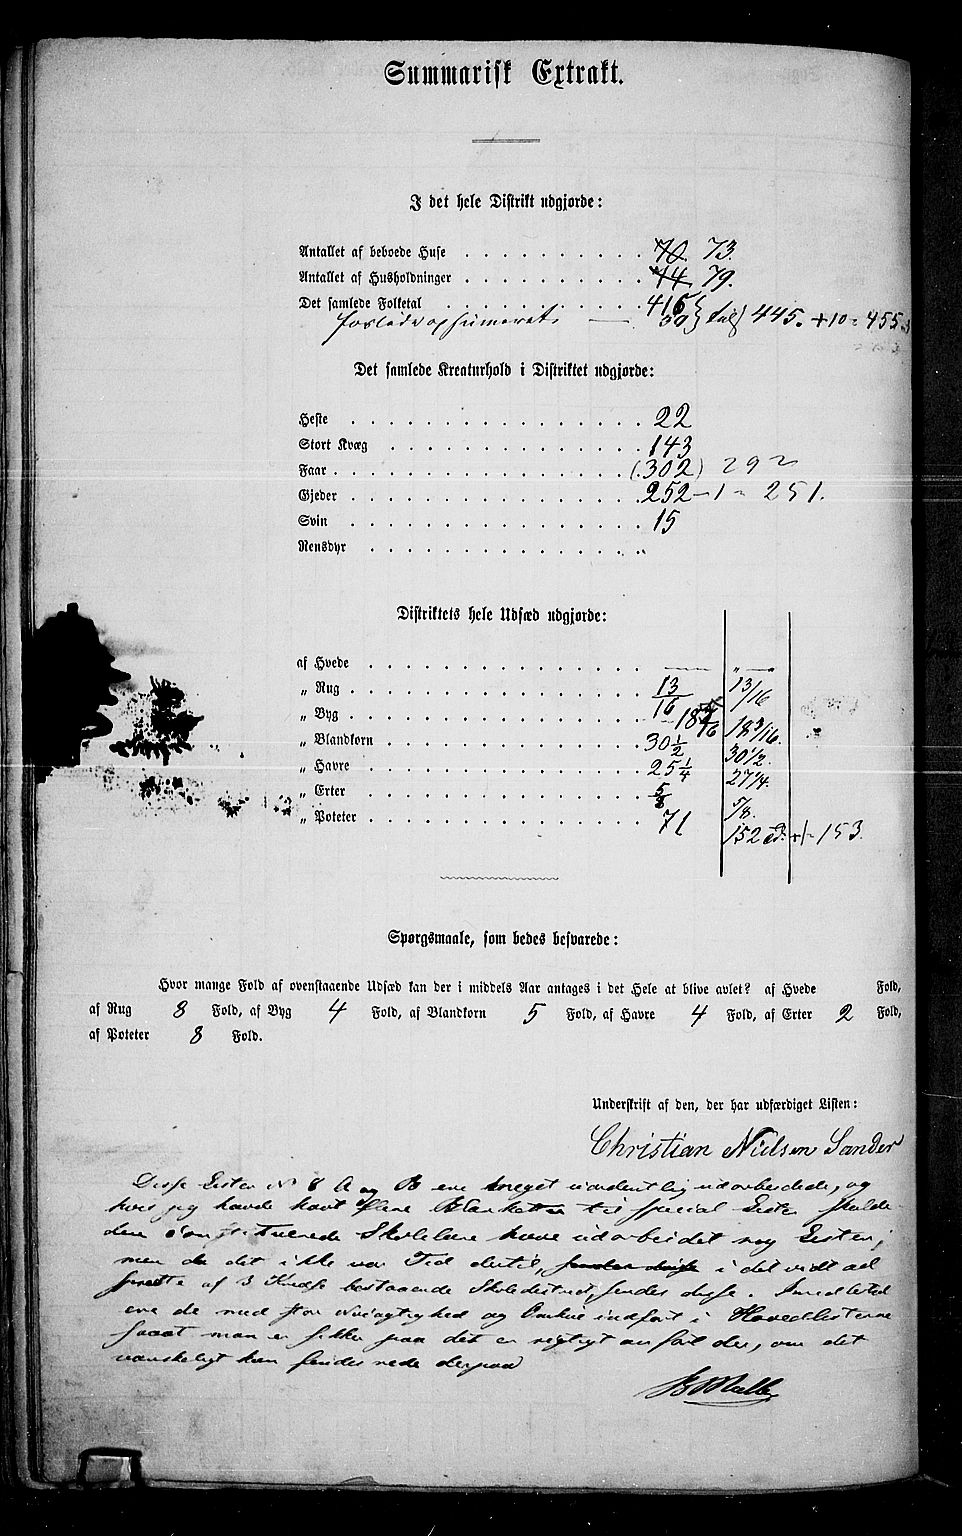 Summarisk Extrakt.
I det hele Distrikt udgjorde:
Antallet af beboede Huse . . . . . . . . . . 70 73.
Antallet af Husholdninger . . . . . . . . . . 74 79.
Det samlede Folketal . . . . . . . . . . 415
30 } til 445. + 10 = 455
Det samlede Kreaturhold i Distriktet udgjorde:
Heste . . . . . . . . . . 22
Stort Kvæg . . . . . . . . . . 143
Faar . . . . . . . . . . (302) 292
Gjeder . . . . . . . . . . 252 - 1 = 251.
Svin . . . . . . . . . . 15
Rensdyr . . . . . . . . . . "
Distriktets hele Udsæd udgjorde:
af Hvede . . . . . . . . . . — " —
„ Rug . . . . . . . . . . 13/16 13/16
„ Byg . . . . . . . . . . 18 3/16 18 3/16.
„ Blandkorn . . . . . . . . . . 30 1/2 30 1/2.
„ Havre . . . . . . . . . . 25 1/4 27 1/4.
„ Erter . . . . . . . . . . 5/8 5/8.
„ Poteter . . . . . . . . . . 71 152 + 1 = 153.
Spørgsmaale, som bedes besvarede:
Hvor mange Fold af ovenstaaende Udsæd kan der i middels Aar antages i det Hele at blive avlet? af Hvede Fold,
af Rug 8 Fold, af Byg 4 Fold, af Blandkorn 5 Fold, af Havre 4 Fold, af Erter 2 Fold,
af Poteter 8 Fold.
Underskrift af den, der har udfærdiget Listen:
Christian Nielsen Sander
Disse Lister No 8 A og B ere meget uordentlig udarbeidede, og
hvis jeg havde havt flere Blanketter til special Lister skulde
den constituerede Skolelærer have udarbeidet nye Lister;
men da det ikke var Tid dertil, i det vidt ad
af 3 Kredse bestaaende Skoledistrict, sendes disse. Imidlertid
ere de med stor Nøiagtighed og Omhu indført i Hovedlisterne
saaat man er sikker paa det er rigtigt anført der, om det
vanskeligt kan findes rede derpaa